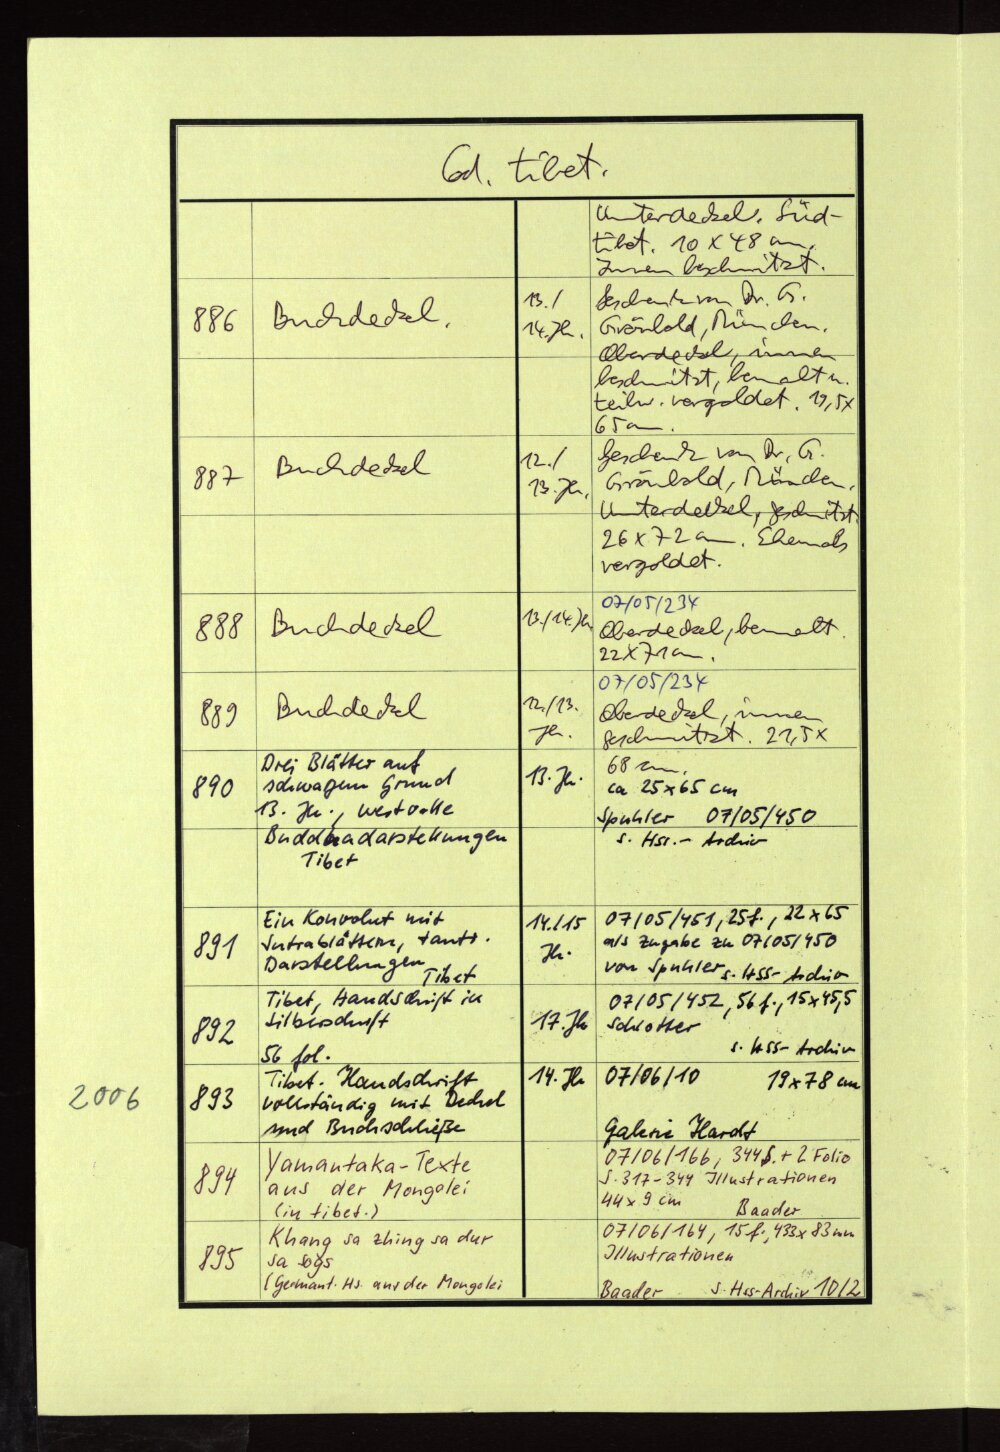 Cod. tibet.
Unterdeckel. Süd-
tibet. 10 x 48 cm.
Innen beschnitzt.
886 Buchdeckel. 13./
14. Jh.
Geschenk von Dr. G.
Grönbold, München.
Oberdeckel, innen
beschnitzt, bemalt u.
teilw. vergoldet. 19,5x
65 cm.
887 Buchdeckel 12./
13. Jh.
Geschenk von Dr. G.
Grönbold, München.
Unterdeckel, geschnitzt.
26 x 72 cm. Ehemals
vergoldet.
888 Buchdeckel 13./14. Jh.
07/05/234
Oberdeckel, bemalt.
22x71 cm.
889 Buchdeckel 12./13.
Jh.
07/05/234
Oberdeckel, innen
geschnitzt. 21,5x
68 cm.
890 Drei Blätter auf
schwarzem Grund
13. Jh., wertvolle
Buddhadarstellungen
Tibet
13. Jh.
ca 25x65 cm
Spuhler 07/05/450
s. Hss.-Archiv
891 Ein Konvolut mit
Sutrablättern, tantr.
Darstellungen
Tibet
14./15
Jh.
07/05/451, 25 f., 22x65
als Zugabe zu 07/05/450
von Spuhler s. HSS-Archiv
892 Tibet, Handschrift in
Silberschrift
56 fol.
17. Jh
07/05/452, 56 f., 15x45,5
Schlotter
s. HSS-Archiv
2006
893 Tibet. Handschrift
vollständig mit Deckel
und Buchschließe
14. Jh
07/06/10 19x78 cm
Galerie Hardt
894 Yamantaka-Texte
aus der Mongolei
(in tibet.)
07/06/166, 344 S. + 2 Folio
S. 317-344 Illustrationen
44x9 cm Baader
895 Khang sa zhing sa dur
sa sogs
(Germant. Hs. aus der Mongolei
07/06/164, 15 f., 433x83 mm
Illustrationen
Baader s. Hss-Archiv 10/2